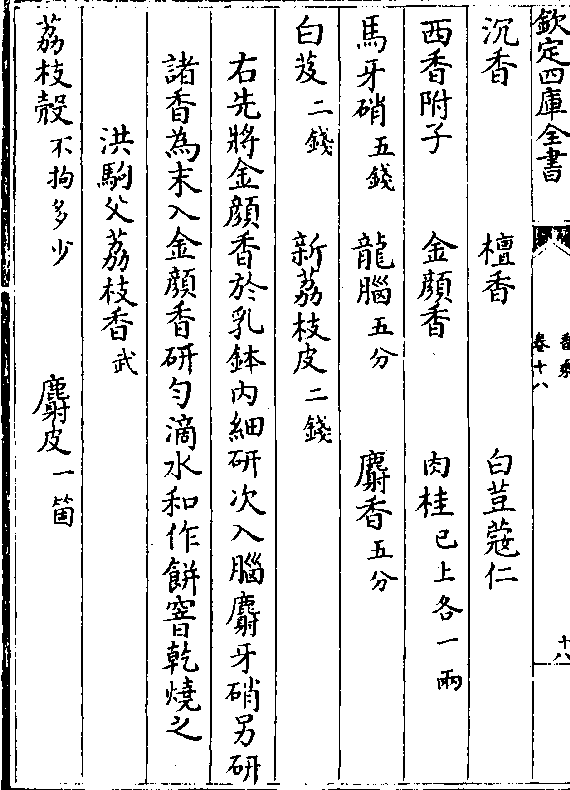 欽定四庫全書
香乘
卷十八
十八
沉香 檀香 白荳蔻仁
西香附子 金顏香 肉桂已上各一兩
馬牙硝五錢 龍腦五分 麝香五分
白芨二錢 新荔枝皮二錢
右先將金顏香於乳鉢內細研次入腦麝牙硝另研
諸香為末入金顏香研勻滴水和作餅窨乾燒之
洪駒父荔枝香武
荔枝殼不拘多少 麝皮一箇